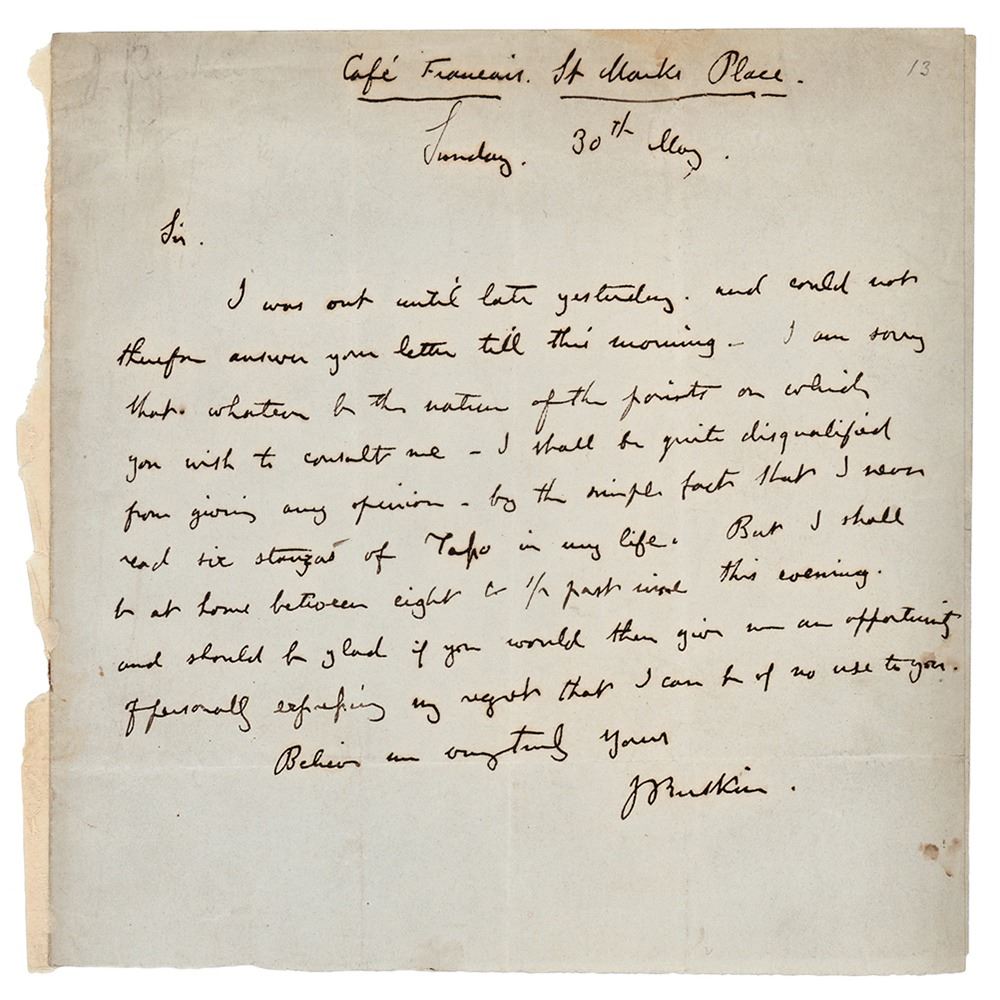 J Ruskin
13
Café Francais. St Marks Place.
Sunday. 30th May.
Sir.
I was out until late yesterday. and could not
therefore answer your letter till this morning - I am sorry
that. whatever be the nature of the points on which
you wish to consult me - I shall be quite disqualified
from giving any opinion - by the simple fact that I never
read six stanzas of Tasso in my life. But I shall
be at home between eight & 1/2 past nine this evening.
and should be glad if you would then give me an opportunity
of personally expressing my regret that I can be of no use to you.
Believe me very truly yours
J Ruskin.